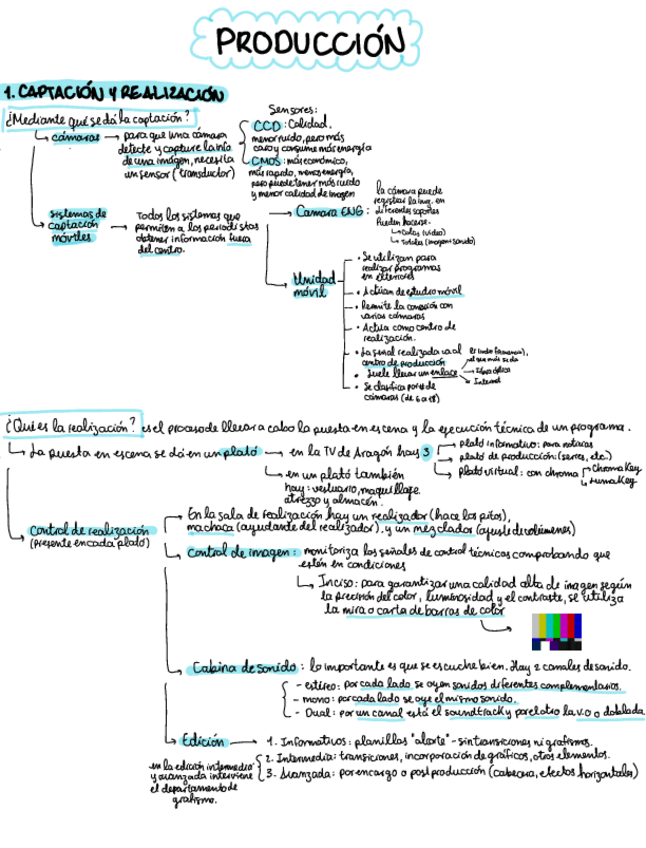 PRODUCCIÓN
1. CAPTACIÓN Y REALIZACIÓN
¿Mediante qué se dá la captación?
cámaras
para que una cámara
detecte y capture la info
de una imagen, necesita
un sensor (transductor)
Sensores:
CCD: Calidad.
menor ruido, pero más
caro y consume más energía
CMOS: más económico,
más rápido, menos energía,
pero puede tener más ruido
y menor calidad de imagen
sistemas de
captación
móviles
Todos los sistemas que
permiten a los periodistas
obtener información fuera
del centro.
Camara ENG:
la cámara puede
registrar la img. en
diferentes soportes
Pueden hacerse.
(video)
Totales (imagen sonido)
Unidad
móvil
• Se utilizan para
realizar programas
en exteriores
• Actúan de estudio móvil
• Permite la conexión con
varias cámaras
• Actúa como centro de
realización.
• La señal realizada va al
centro de producción
• Suele llevar un enlace
el que más se da
Fibra óptica
Internet
• Se clasifica por nº de
cámaras (de 6 a 18)
¿Qué es la realización? es el proceso de llevar a cabo la puesta en escena y la ejecución técnica de un programa.
La puesta en escena se da en un plató
en la TV de Aragón hay 3
plató informativo: para noticias
plató de producción: (series, etc.)
plató virtual: con chroma
Chroma Key
Luma Key
en un plató también
hay: vestuario, maquillaje,
atrezzo y almacén.
Control de realización
(presente en cada plató)
En la sala de realización hay un realizador (hace los pitos),
machaca (ayudante del realizador). y un mezclador (ajuste de volúmenes)
Control de imagen: monitoriza los señales de control técnicos comprobando que
estén en condiciones
Inciso: para garantizar una calidad alta de imagen según
la precisión del color, luminosidad y el contraste, se utiliza
la mira o carta de barras de color
Cabina de sonido: lo importante es que se escuche bien. Hay 2 canales de sonido.
- estéreo: por cada lado se oyen sonidos diferentes complementarios.
- mono: por cada lado se oye el mismo sonido.
- Dual: por un canal está el soundtrack y por el otro la v.o o doblada
Edición
1. Informativos: planillas "al corte" - sin transiciones ni grafismos.
2. Intermedia: transiciones, incorporación de gráficos, otros elementos.
3. Avanzada: por encargo o post producción (cabecera, efectos horizontales)
en la edición intermedia
y avanzada interviene
el departamento de
grafismo.